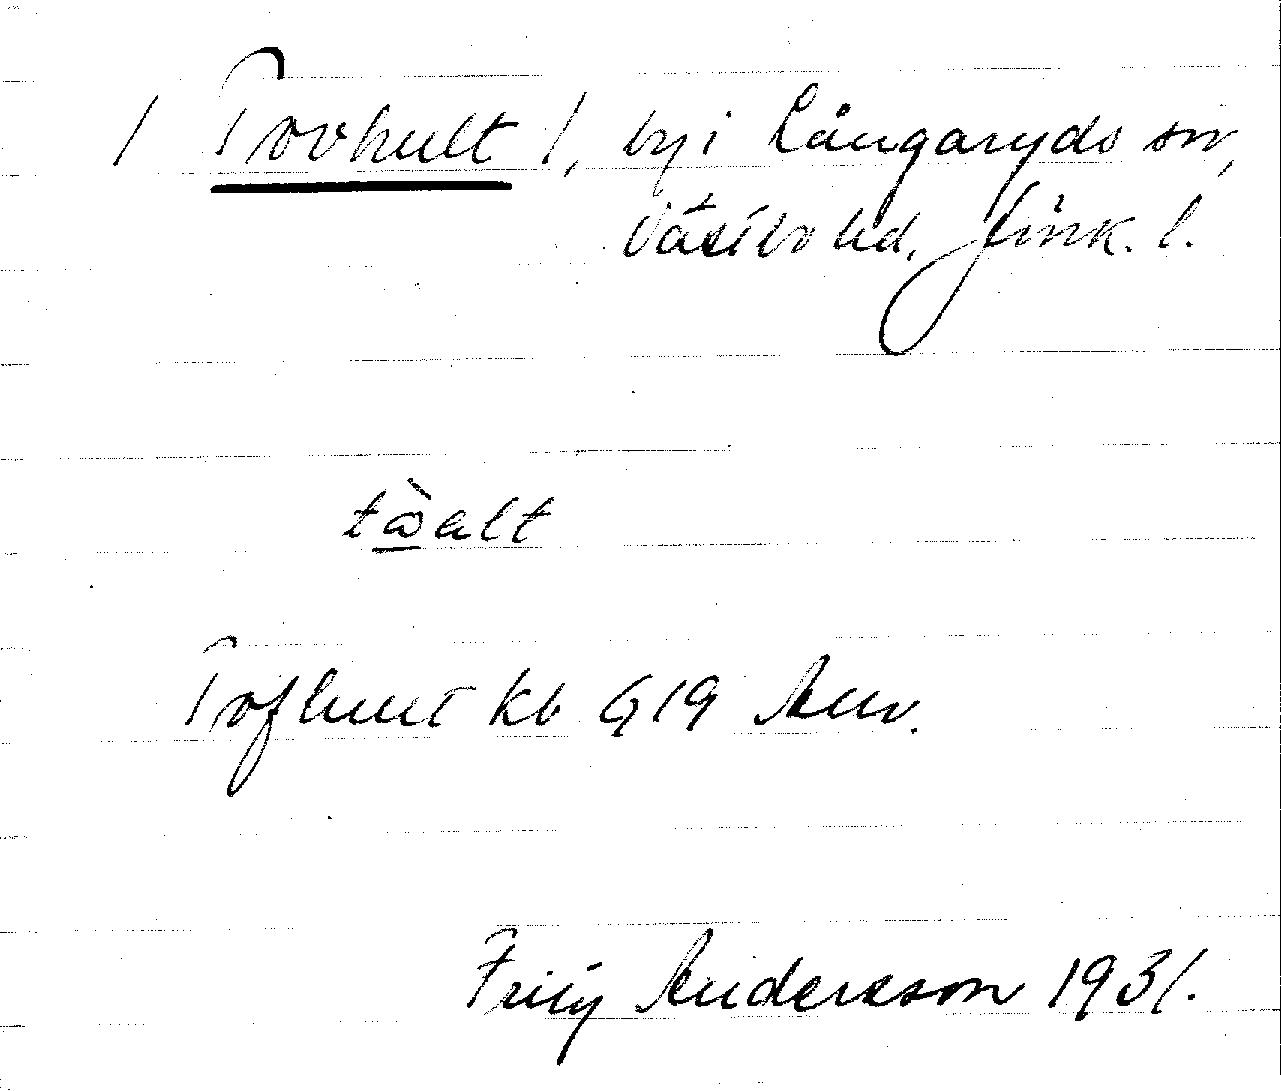 / Tovhult /, by i Långaryds sn,
Västbo hd, Jönk. l.
tòalt
Tofhult kb G 19 Anv.
Frity Andersson 1931.